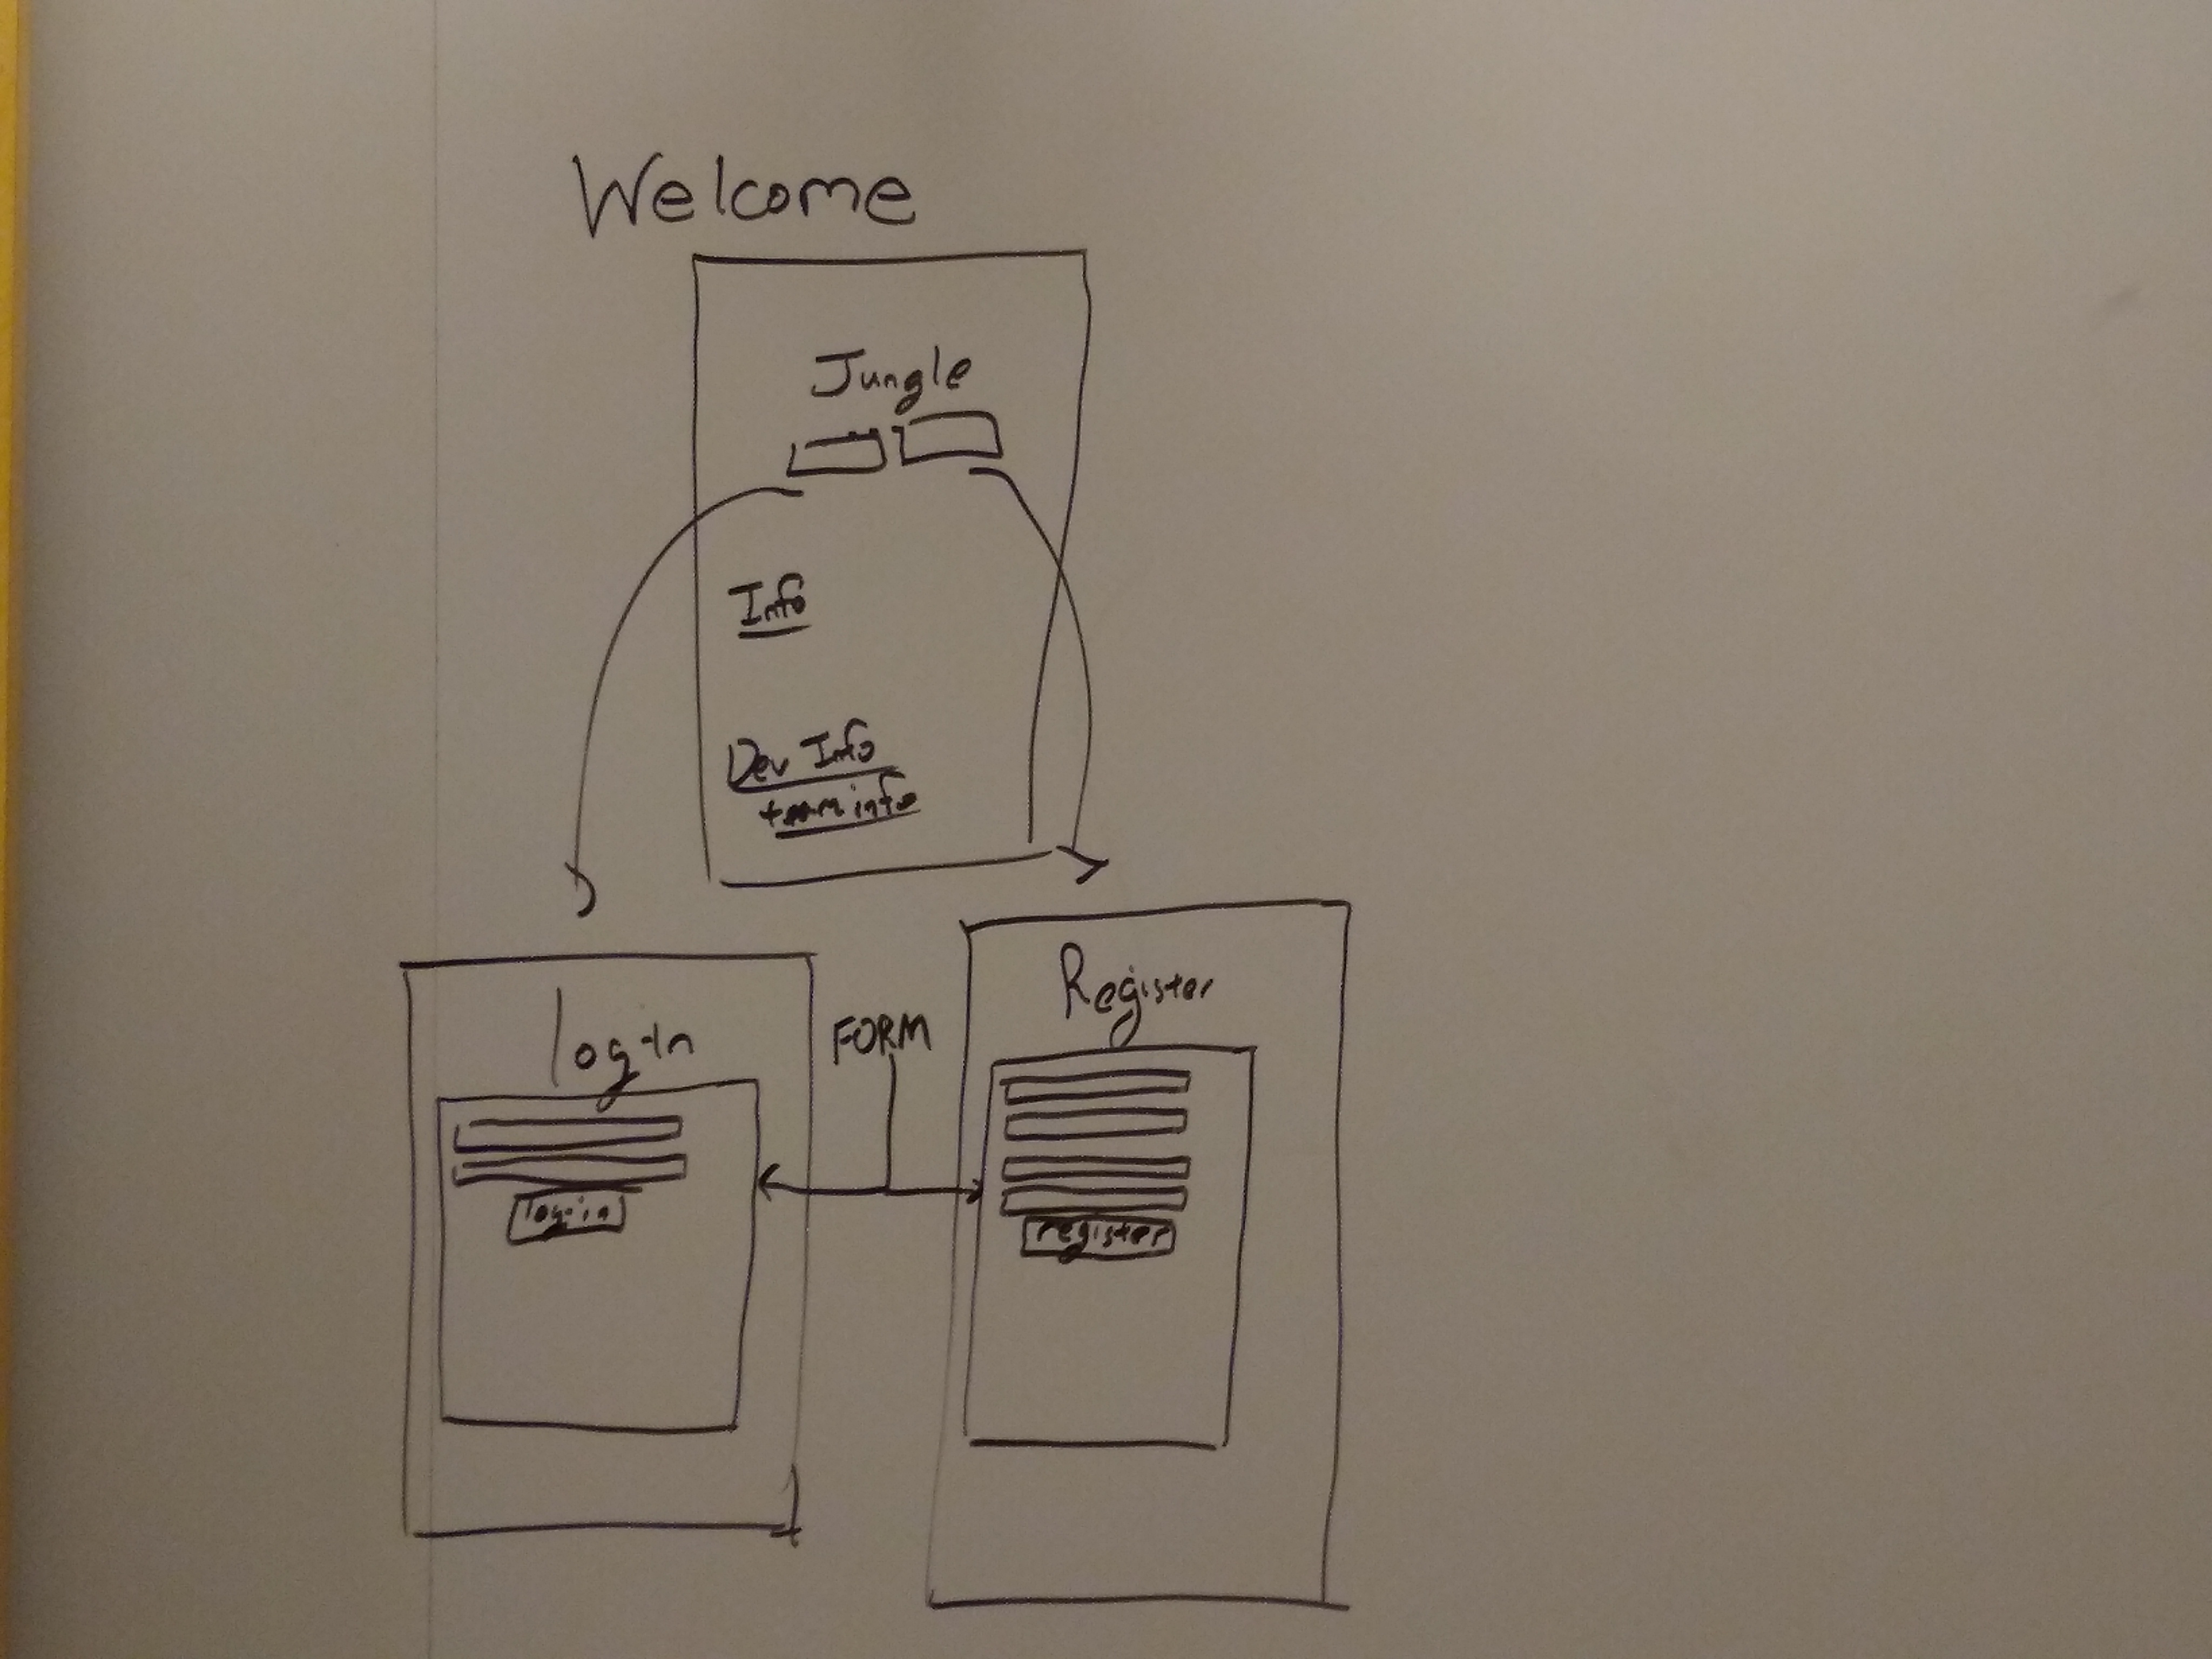 Welcome
Jungle
Info
Dev Info
team info
log-in
FORM
Register
log-in
register